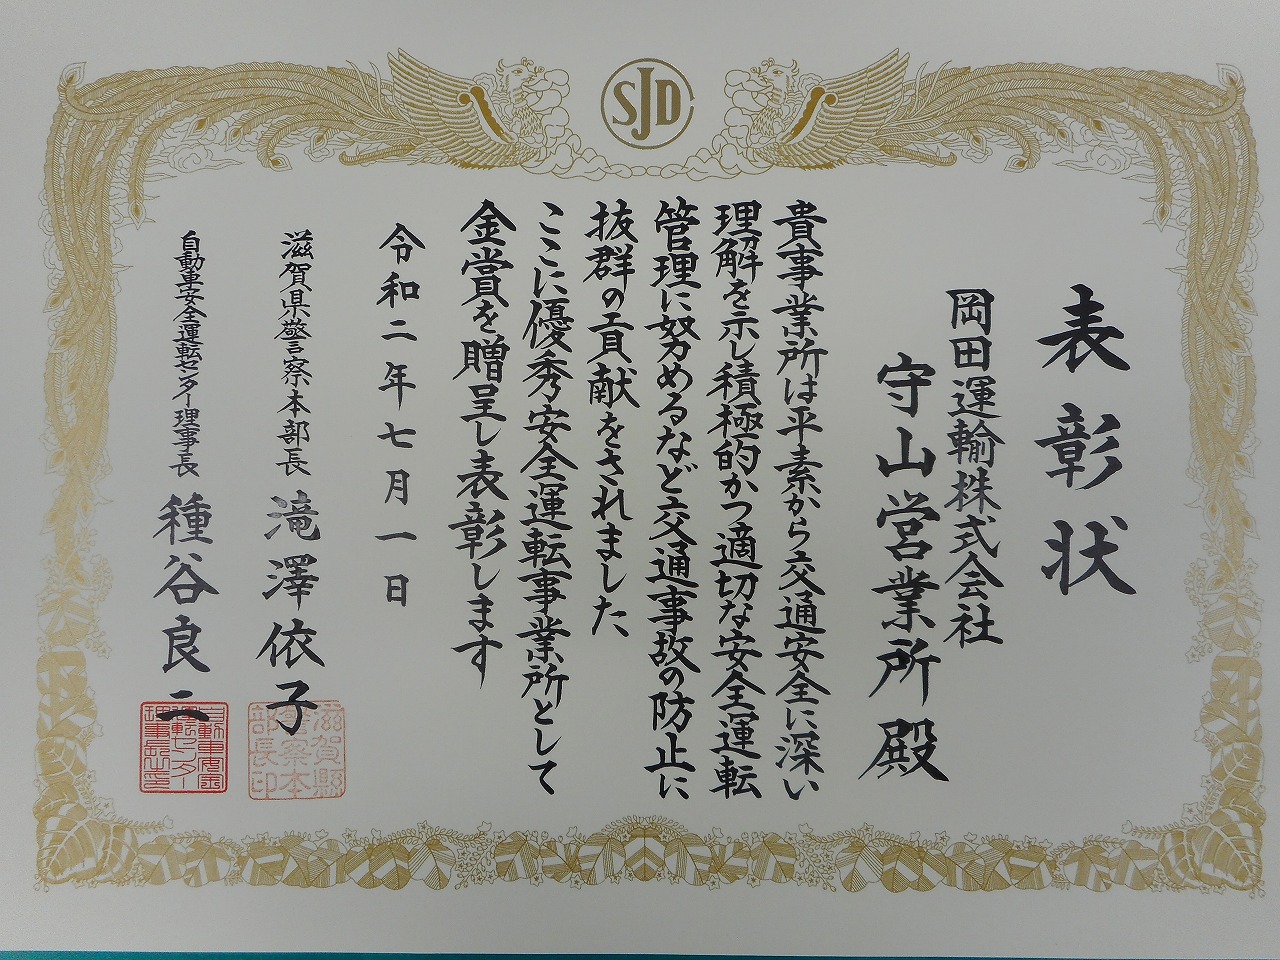 SJD
表彰状
岡田運輸株式会社
守山営業所殿
貴事業所は平素から交通安全に深い
理解を示し積極的かつ適切な安全運転
管理に努めるなど交通事故の防止に
抜群の貢献をされました
ここに優秀安全運転事業所として
金賞を贈呈し表彰します
令和二年七月一日
滋賀県警察本部長 滝澤依子
滋賀縣
警察本
部長印
自動車安全運転センター理事長 種谷良二
自動車安全
運転センター
理事長之印